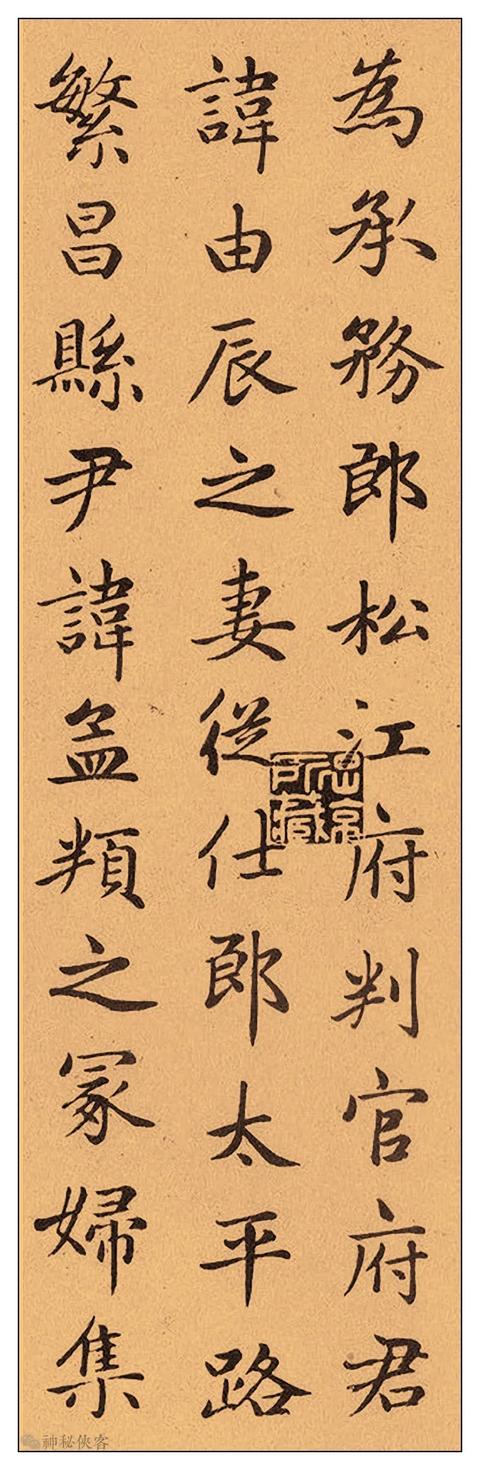 為承務郎松江府判官府君
諱由辰之妻從仕郎太平路
繁昌縣尹諱孟頖之冢婦集
神秘俠客